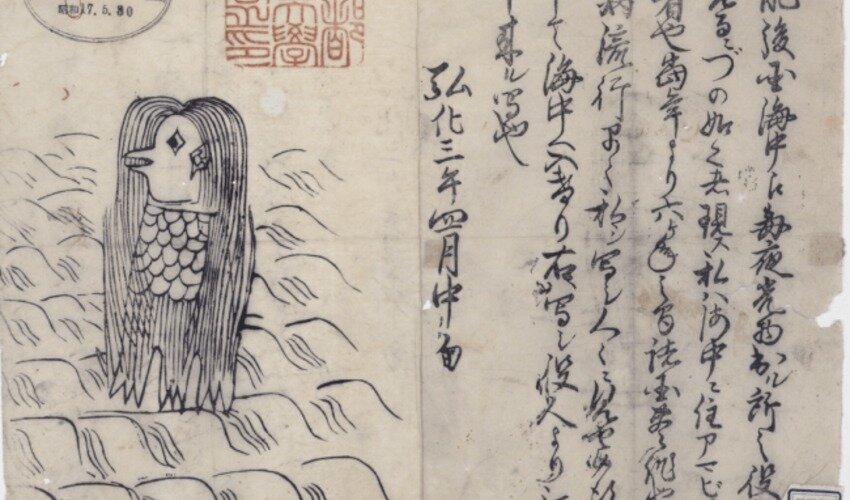 肥後国海中江毎夜光物出ル所之役
見るニづの如く者現ス私ハ海中ニ住アマビ
者也當年より六ヶ年之間諸国豊作也
病流行早々私ヲ写シ人々ニ見セ候得
て海中へ入けり右写シ役人より
申来ル写也
弘化三年四月中旬
大學
昭和17.5.30